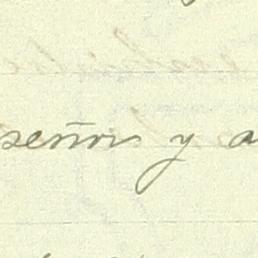 señor y a